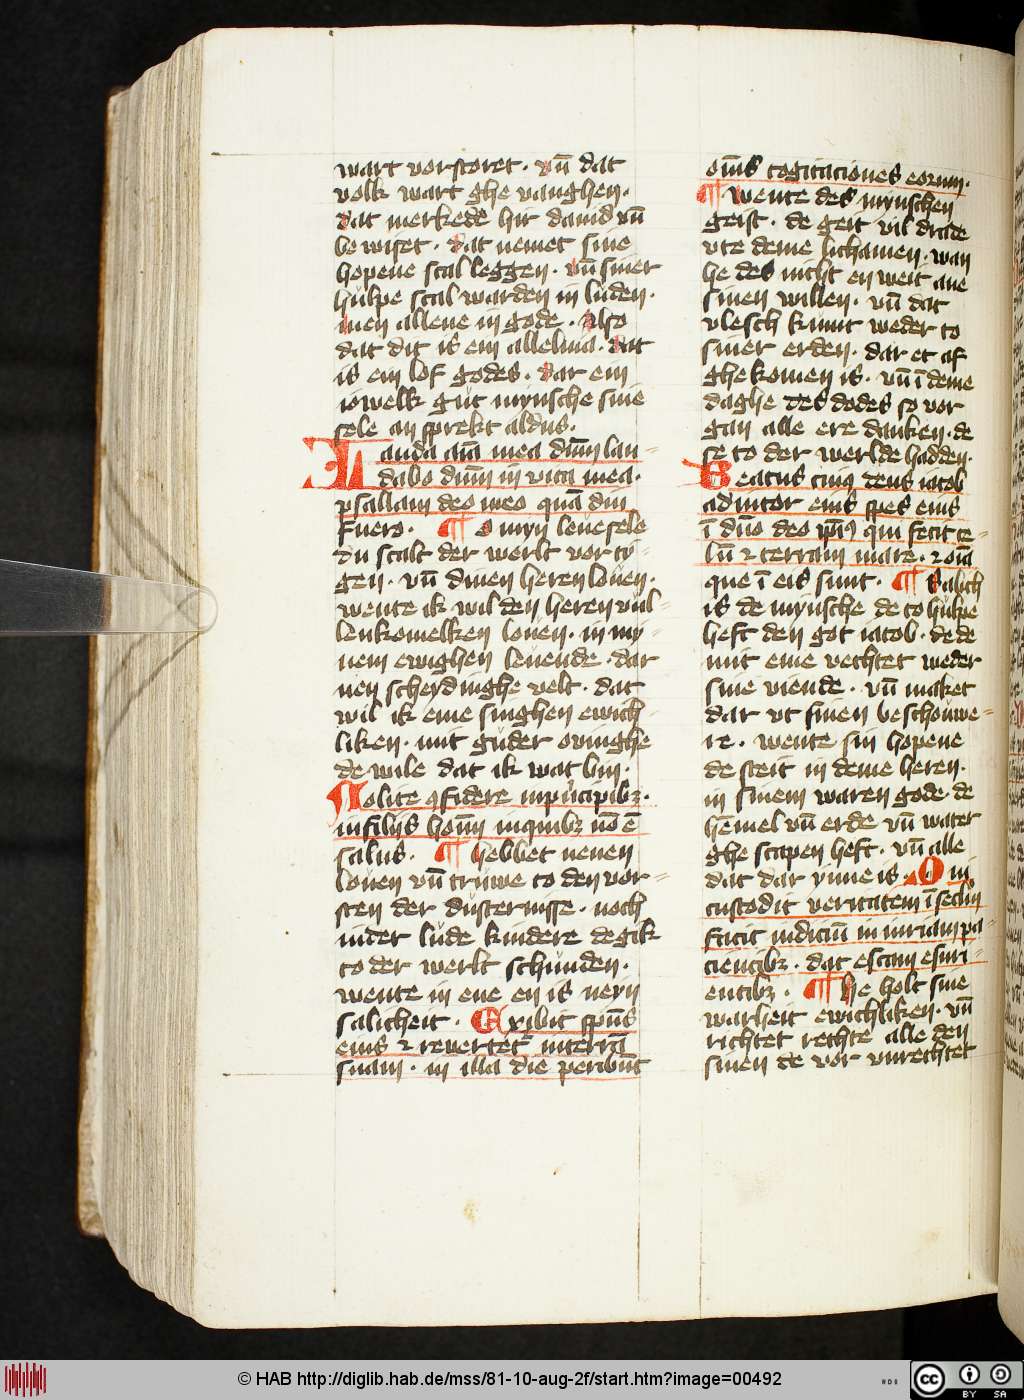 wart vorstoret · vn̄ dat
volk wart ghe vanghen ·
dat merkede hir dauid vn̄
be wiset · dat nemet sine
hopene scal leggen · vn̄ siner
hulpe scal warden in luden ·
men allene in gode · also
dat dit is ein alleluia · dat
is ein lof godes · dar ein
iowelk gut mynsche sine
sele an sprekt aldus ·
Lauda aīa mea dn̄m lau-
dabo dn̄m in vita mea ·
psallam deo meo quā diu
fuero · ¶ O myn leue sele
du scalt der werlt vor ty-
gen · vn̄ dinen heren louen ·
wente ik wil den heren vul-
lenkomelken louen · in my-
nem ewighen leuende · dar
nen scheydinghe velt · dat
wil ik eme singhen ewich-
liken · mit guder ouinghe
de wile dat ik wat bin ·
Nolite ꝯfidere in p'ncipibꝫ ·
in filijs hoīm in quibꝫ nō ē
salus · ¶ Hebbet nenen
louen vn̄ truwe to den vor-
sten der dusternisse · noch
in der lude kindere de gik
to der werlt schunden ·
wente in ene en is neyn
salicheit · Exibit sp̄us
eius ⁊ reuertet' in terrā
suam · in illa die peribūt
om̄s cogitaciones eorum ·
¶ Wente des mynschen
geist · de geit vil drade
vte deme lichamen · wan
he des nicht en weit ane
sinen willen · vn̄ dat
vlesch kumt weder to
siner erden · dar et af
ghe komen is · vn̄ ī deme
daghe des dodes so vor
gan alle ere danken · de
se to der werlde hadden ·
Beatus cuiꝯ deus iacob
adiutor eius spes eius
ī dn̄o deo ip̄iꝯ qui fecit ce-
lū ⁊ terram mare · ⁊ oīa
que ī eis sunt · ¶ Salich
is de mynsche de to hulpe
heft den got iacob · de de
mit eme vechtet weder
sine viende · vn̄ maket
dar vt sinen beschouwe-
re · wente sin hopene
de steit in deme heren ·
in sinem waren gode · de
hemel vn̄ erde vn̄ water
ghe scapen heft · vn̄ alle
dat dar ynne is · Qui
custodit veritatem ī seclm̄
facit iudiciū iniuriam pa-
cientibꝫ · dat escam esuri-
entibꝫ · ¶ he holt sine
warheit ewichliken · vn̄
richtet rechte alle den
sinen de vor vnrechtet
© HAB http://diglib.hab.de/mss/81-10-aug-2f/start.htm?image=00492
cc BY SA